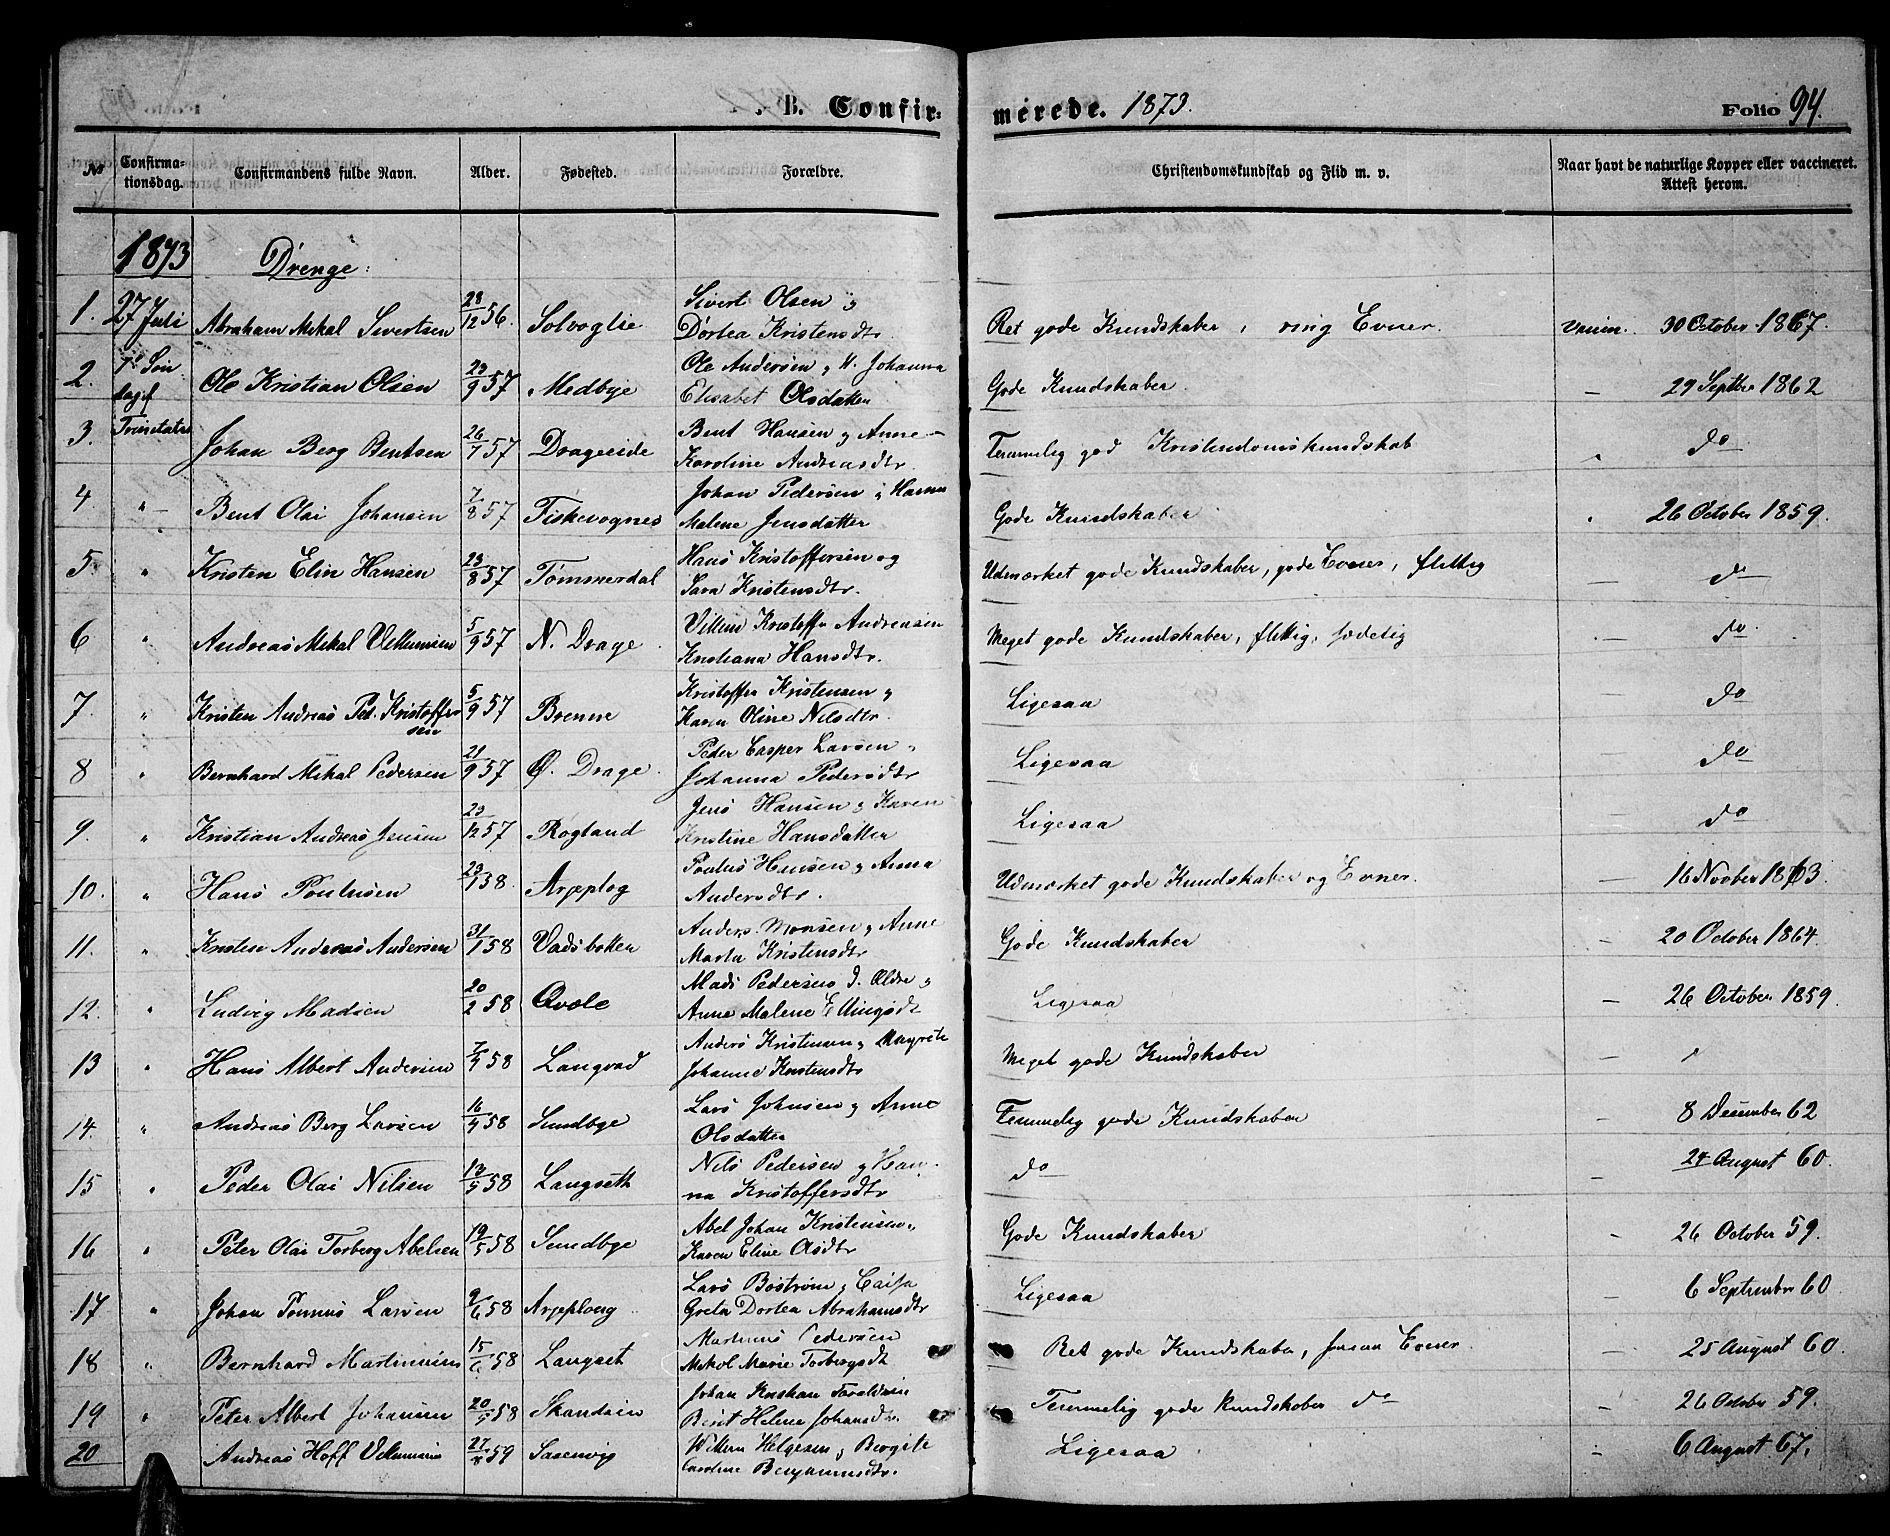 B. Confirmerede. 1873.
Folio 94.
No
Confirmationsdag.
Confirmandens fulde Navn.
Alder.
Fødested.
Forældre.
Christendomskundskab og Flid m. v.
Naar havt de naturlige Kopper eller vaccineret.
Attest herom.
1873
Drenge:
1. 27 Juli Abraham Mikal Sivertsen 28/12 56. Solvoglie Sivert Olsen og
Dortea Kristensdtr. Ret gode Kundskaber, ring Evner. Vaccin. 30 October 1867.
2. Søn Ole Kristian Olsen 29/9 57 Medbye Ole Andersen og M. Johanna
dag ef Elisabet Olsdatter Gode Kundskaber. — 29 Septber 1862
3. Trinitatis Johan Berg Bentsen 26/7 57 Drageeide Bent Hansen og Anne
Karoline Andreasdtr. Temmelig god Kristendomskundskab do
4. " Bent Olai Johansen 7/8 57 Fiskevognes Johan Pedersen og Hanna
Malene Jensdatter Gode Kundskaber 26 October 1859.
5 " Kristen Elin Hansen 23/8 57 Tømmerdal Hans Kristoffersen og
Sara Kristensdtr. Udmærket gode Kundskaber, gode Evner, flittig — do
6 " Andreas Mikal Villumsen 5/9 57 N. Drage Villum Kristoffr Andreasen
Kristiana Hansdtr. Meget gode Kundskaber, flittig, sædelig — do
7. " Kristen Andreas Ped. Kristoffer
sen 5/9 57 Brenne Kristoffer Kristensen og
Karen Oline Nilsdtr. Ligesaa — do
8 " Bernhard Mikal Pedersen 21/9 57 Ø. Drage. Peder Casper Larsen og
Johanna Pedersdtr Ligesaa — do
9. " Kristian Andreas Jensen 23/12 57 Røgland Jens Hansen og Karen
Kristine Hansdatter Ligesaa — do
10. " Hans Poulusen 23/1 58. Arjeplog Poulus Hansen og Anna
Andersdtr. Udmærket gode Kundskaber og Evner. — 16 Novber 1863.
11. " Kristen Andreas Andersen 31/1 58 Vadsbakken Anders Monsen og Anne
Marta Kristensdtr. Gode Kundskaber — 20 October 1864.
12. " Ludvig Madsen 20/2 58 Qvale Mads Pedersen d. Ældre og
Anne Malene Ellingsdt Ligesaa — 26 October 1859.
13 " Hans Albert Andersen 7/4 58 Langvad Anders Kristensen og Margrete
Johanne Kristensdtr Meget gode Kundskaber — "
14. " Andreas Berg Larsen 16/4 58 Sundbye Lars Johnsen og Anne
Olsdatter Temmelig gode Kundskaber — 8 December 62
15 " Peder Olai Nilsen 13/5 58 Langseth Nils Pedersen og
na Kristoffersdtr do — 24 August 60.
16 " Peter Olai Torberg Abelsen 19/5 58 Sundbye Abel Johan Kristensen og
Karen Eline Asdtr Gode Kundskaber — 26 October 59.
17 " Johan Larsen 9/6 58 Arjeploug Lars Bostrøm og Caisa
Greta Dortea Abrahamsdtr Ligesaa — 6 September 60
18 " Bernhard Martinsen 15/6 58 Langset Martinus Pedersen
Mikol Marie Torbergsdt Ret gode Kundskaber, svage Evner. — 25 August 60.
19 " Peter Albert Johansen 20/5 58 Skandsen Johan Kristian Toraldsen
Berit Helene Johansdtr. Temmelig gode Kundskaber do — 26 October 59.
20 Andreas Hoff Villumsen 27/ 59 Saxenvig Willum Helgesen og Bergite
Caroline Benjaminsdtr. Ligesaa — 6 August 67.